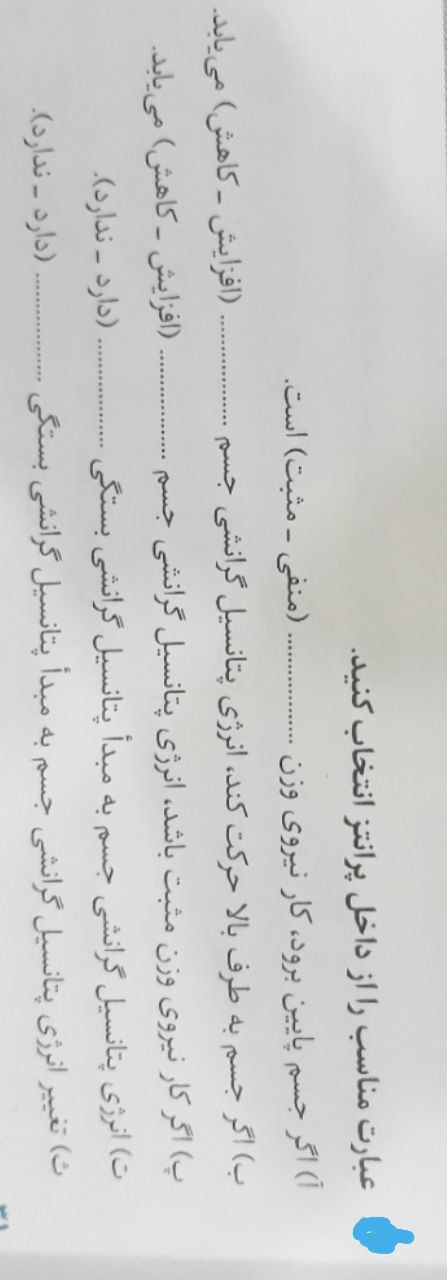 عبارت مناسب را از داخل پرانتز انتخاب کنید.
آ) اگر جسم پایین برود، کار نیروی وزن ................ (منفی - مثبت) است.
ب) اگر جسم به طرف بالا حرکت کند، انرژی پتانسیل گرانشی جسم ................ (افزایش - کاهش) می‌یابد.
پ) اگر کار نیروی وزن مثبت باشد، انرژی پتانسیل گرانشی جسم ................ (افزایش - کاهش) می‌یابد.
ت) انرژی پتانسیل گرانشی جسم به مبدأ پتانسیل گرانشی بستگی ................ (دارد - ندارد).
ث) تغییر انرژی پتانسیل گرانشی جسم به مبدأ پتانسیل گرانشی بستگی ................ (دارد - ندارد).